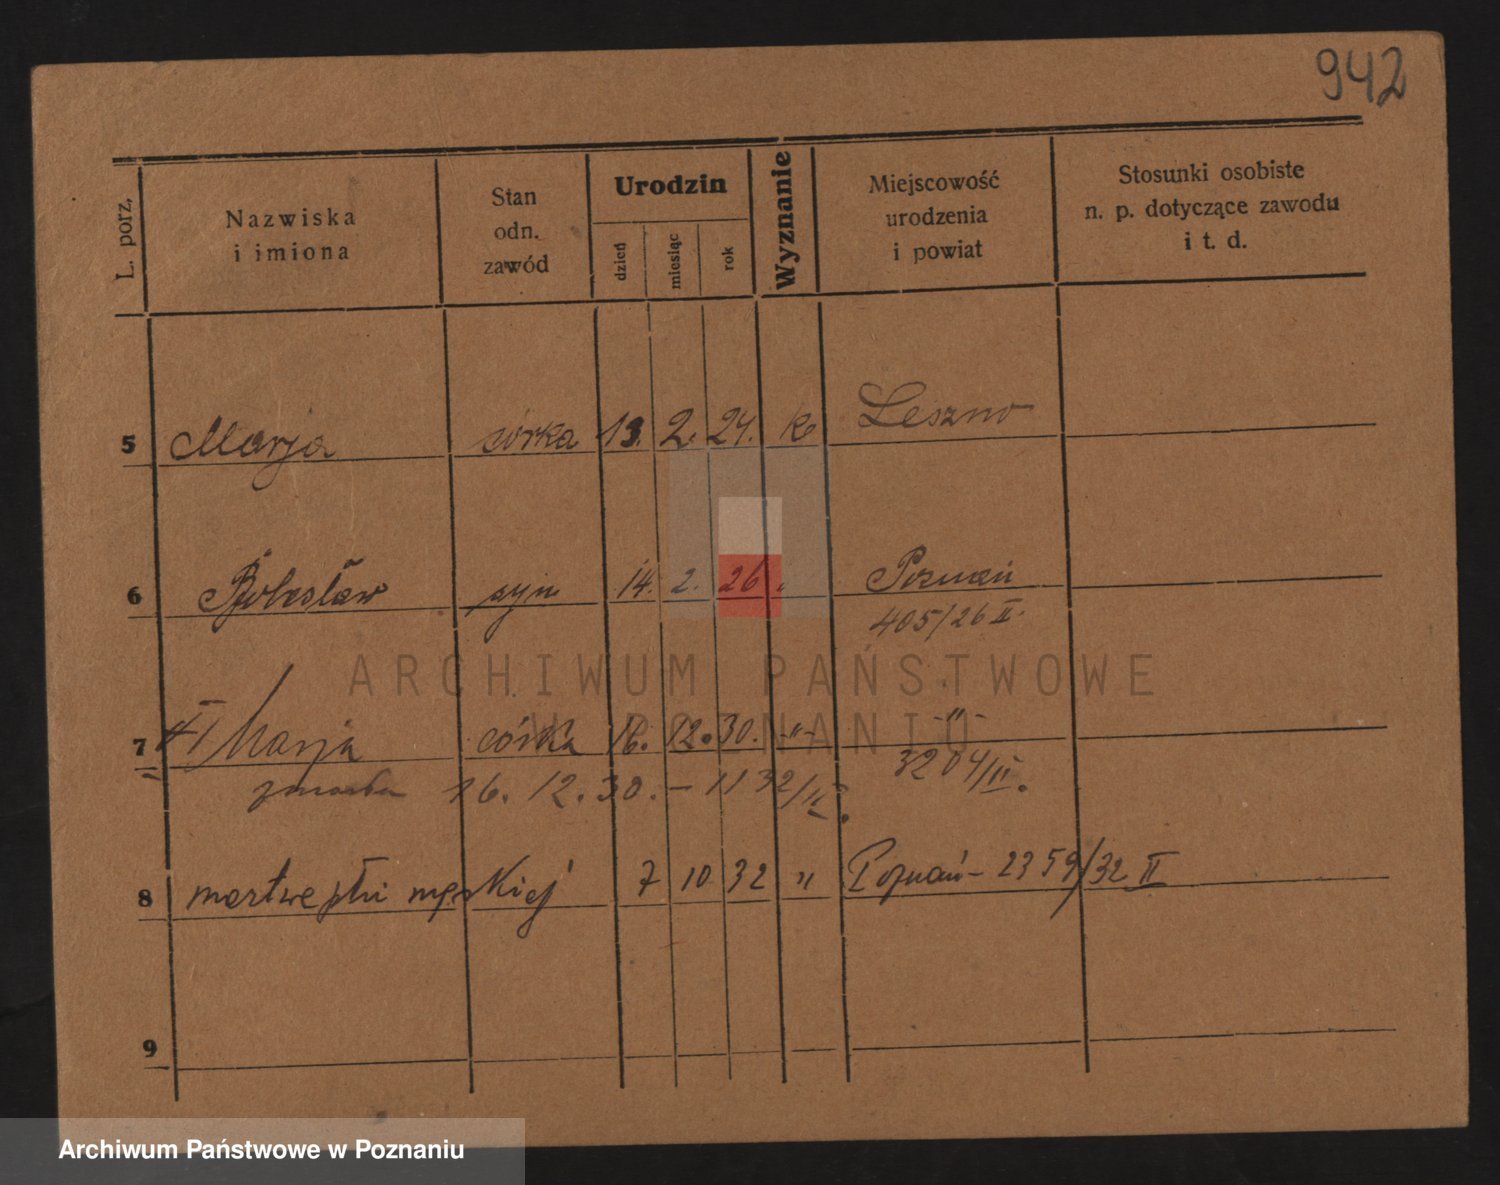 942
L. porz.
Nazwiska
i imiona
Stan
odn.
zawód
Urodzin
dzień
miesiąc
rok
Wyznanie
Miejscowość
urodzenia
i powiat
Stosunki osobiste
n. p. dotyczące zawodu
i t. d.
5 Marja córka 13. 2. 24. k Leszno
6 Bolesław syn 14. 2. 26 " Poznań
405/26 II.
ARCHIWUM PAŃSTWOWE
W POZNANIU
7 Marja córka 16. 12. 30. -"- -"-
3204/II.
zmarła 16. 12. 30. - 1132/II.
8 martwe płci męskiej 7 10 32 " Poznań - 2359/32 II
9
Archiwum Państwowe w Poznaniu